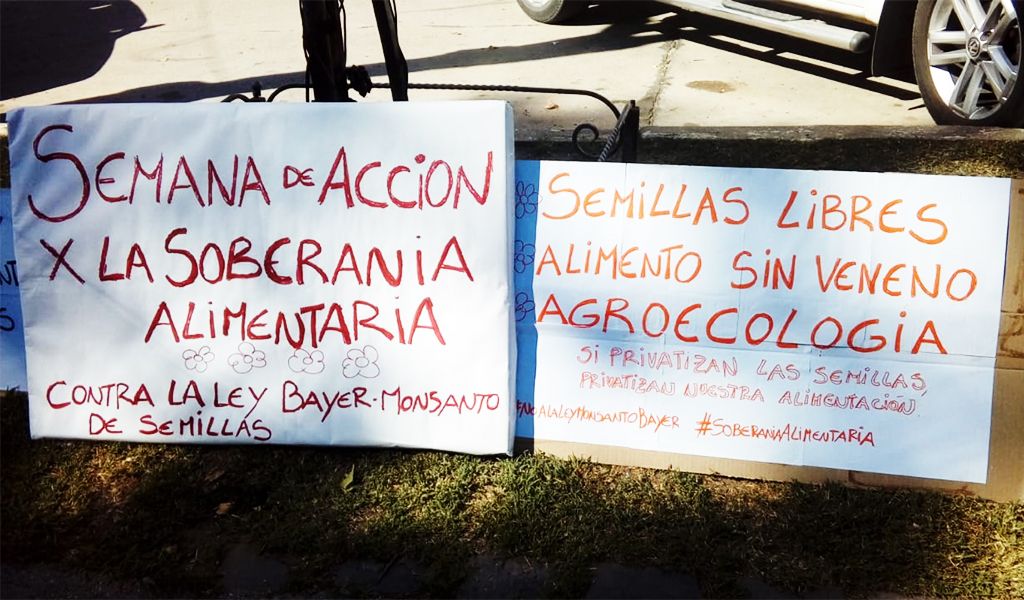 SEMANA DE ACCIÓN
X LA SOBERANIA
ALIMENTARIA
CONTRA LA LEY BAYER-MONSANTO
DE SEMILLAS
SEMILLAS LIBRES
ALIMENTO SIN VENENO
AGROECOLOGIA
SI PRIVATIZAN LAS SEMILLAS,
PRIVATIZAN NUESTRA ALIMENTACIÓN.
#NOALALEYMONSANTOBAYER #SOBERANIAALIMENTARIA